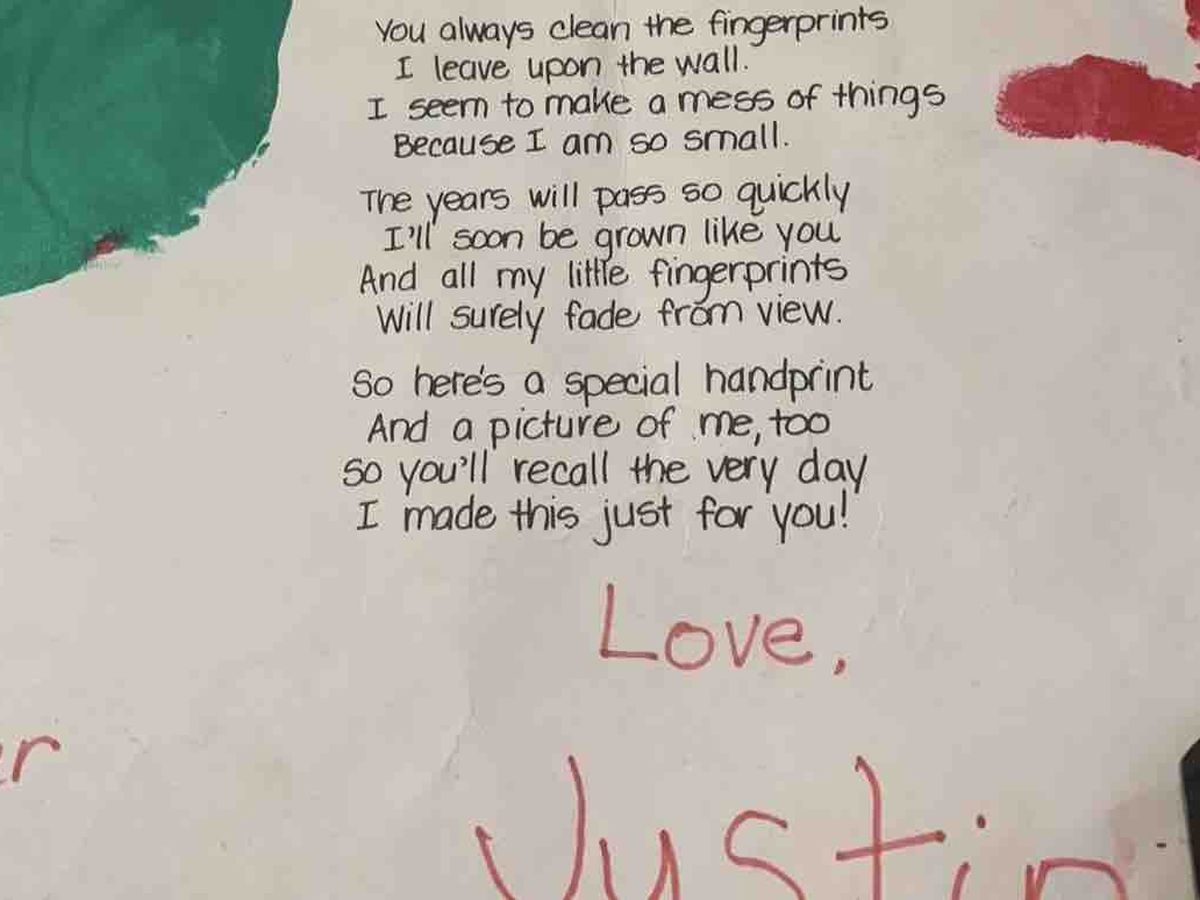 You always clean the fingerprints
I leave upon the wall.
I seem to make a mess of things
Because I am so small.
The years will pass so quickly
I'll soon be grown like you
And all my little fingerprints
Will surely fade from view.
So here's a special handprint
And a picture of me, too
So you'll recall the very day
I made this just for you!
Love,
Justin